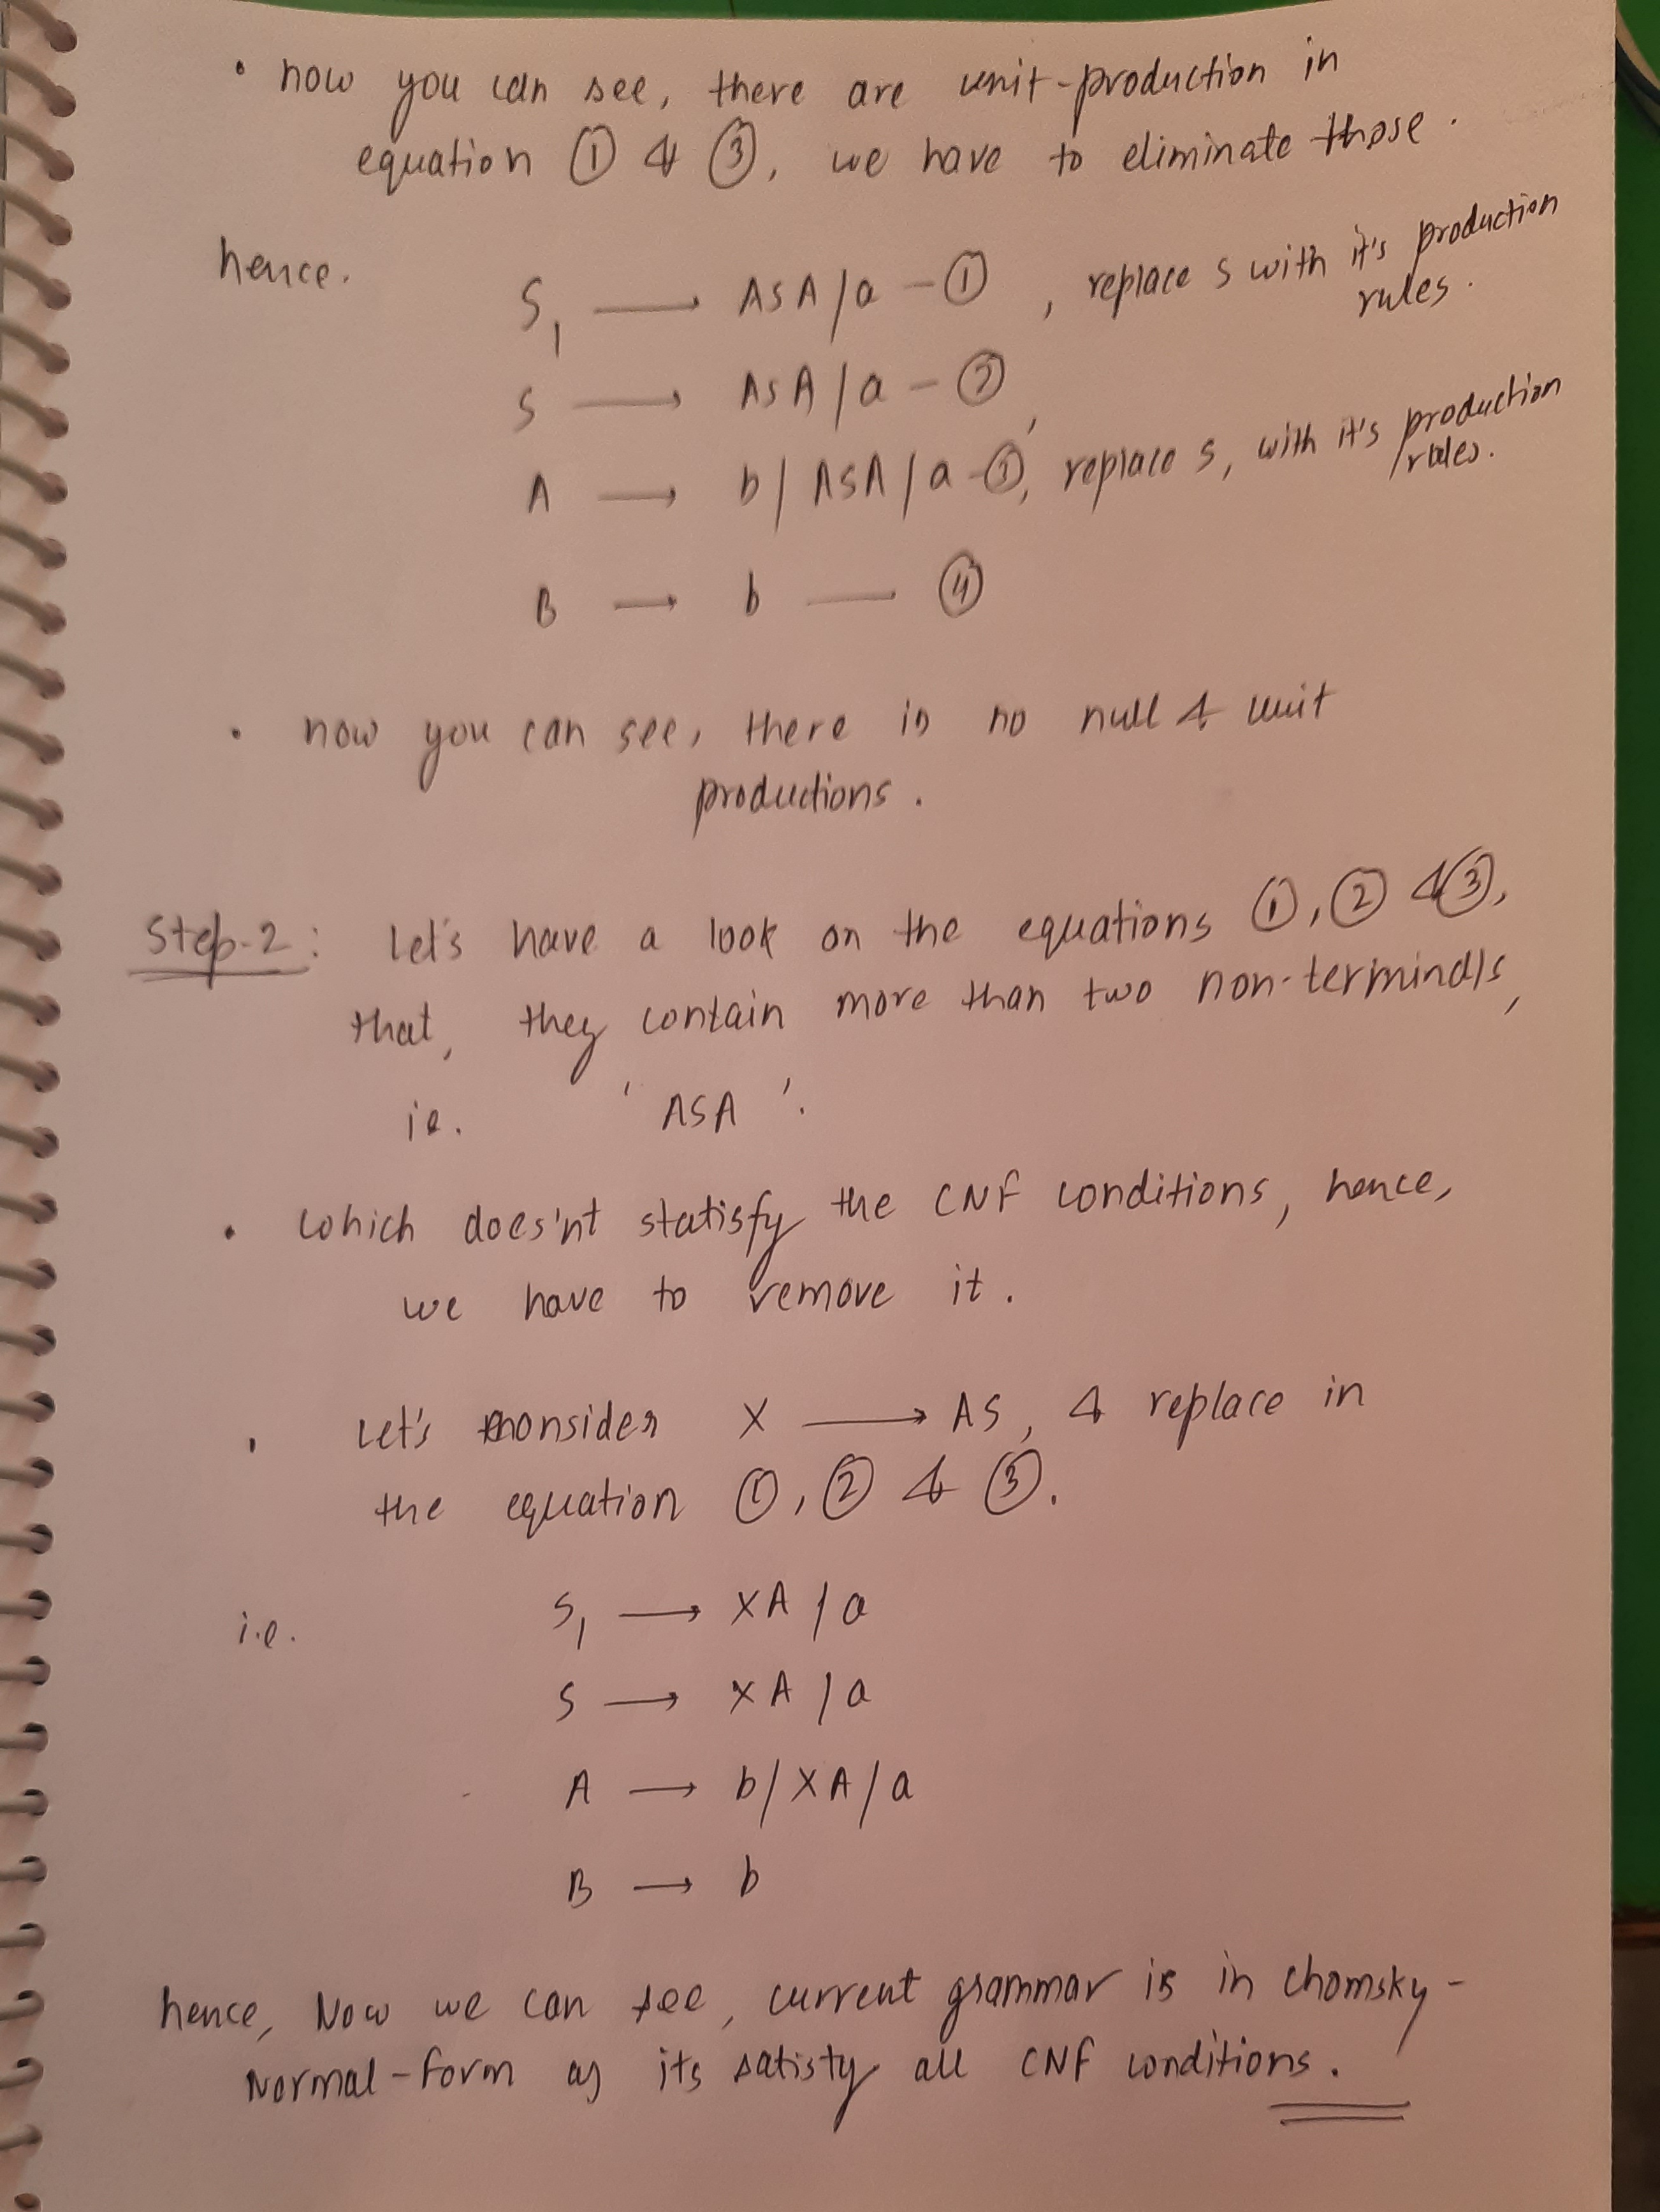 • now you can see, there are unit-production in
equation ① & ③, we have to eliminate those.
hence. S₁ → ASA/a - ① , replace S with it's production
rules.
S → ASA/a - ②
A → b/ASA/a - ③, replace S, with it's production
rules.
B → b — ④
• now you can see, there is no null & unit
productions.
Step-2: Let's have a look on the equations ①, ② & ③,
that, they contain more than two non-terminals,
ie. 'ASA'.
• which does'nt statisfy the CNF conditions, hence,
we have to remove it.
• Let's consider X → AS, & replace in
the equation ①, ② & ③.
i.e. S₁ → XA/a
S → XA/a
A → b/XA/a
B → b
hence, Now we can see, current grammar is in chomsky-
Normal-form as its satisty all CNF conditions.